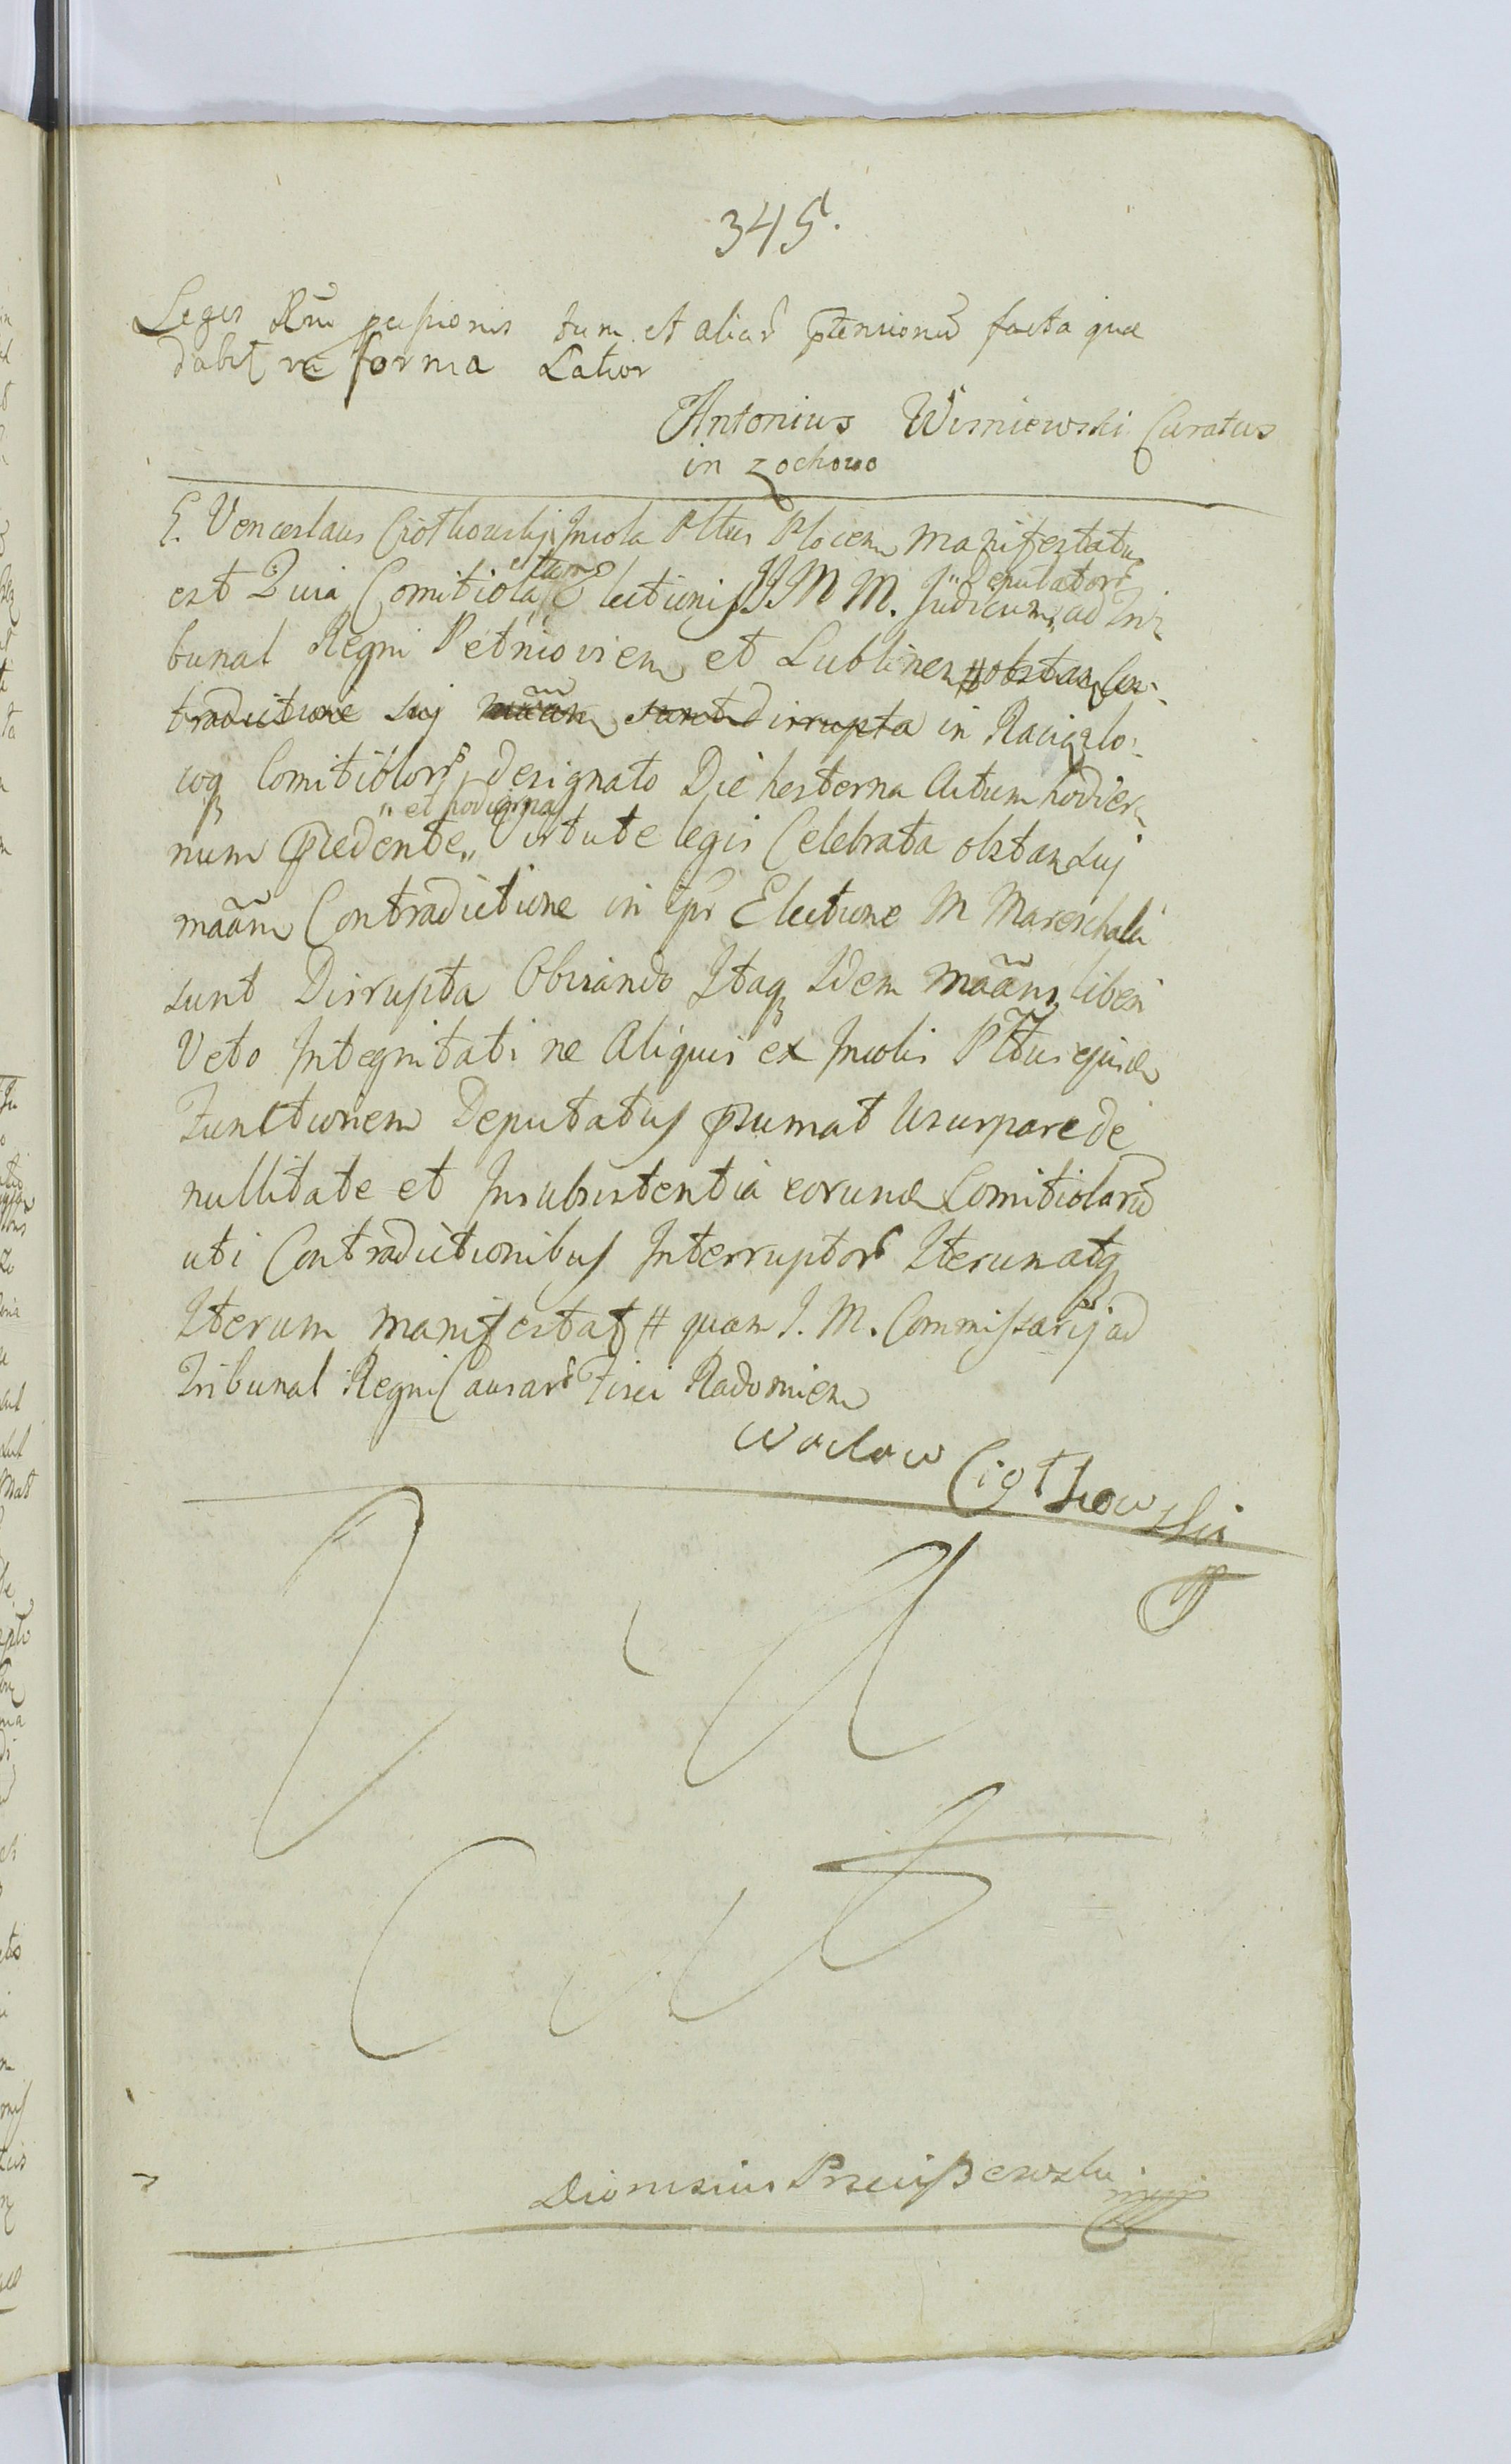 345.
Leges Rm̄ pastionis tum et aliar ptensionū facta quæ
dabit in forma Latior
Antonius Wisniewski Curatus
in Zochowo
G. Venceslaus Ciotkouskij Incola Pttus Plocen Manifestatus
est Quia Comitiola et tam Electionis JJ. M M. Judicum, Deputator ad Tri
bunal Regni Petricovien et Lublinen # obstan Con:
tradictione suj mãan sunt dirrupta in Raciąz lo:
coq Comitiolor designato Die hesterna Actum hodier
num præcedente,, et hodierna Virtute legis Celebrata obstan suj
mãan Contradictione in ipsa Electione M Mareschalci
sunt Dirrupta Obviando Itaq Idem Mãans liberi
Veto Integritati ne Aliquis ex Incolis Pttus ejusdem
Functionem Deputatus psumat Usurpare de
nullitate et Insubsistentia eorund Comitiolarū
uti Contradictionibus Interruptor Iterum atq
Iterum manifestat # quam J. M. Commissarij ad
Tribunal Regni Causar Fisci Radomien
Woclow Ciothowski
Dionisius Prciszewski mpp